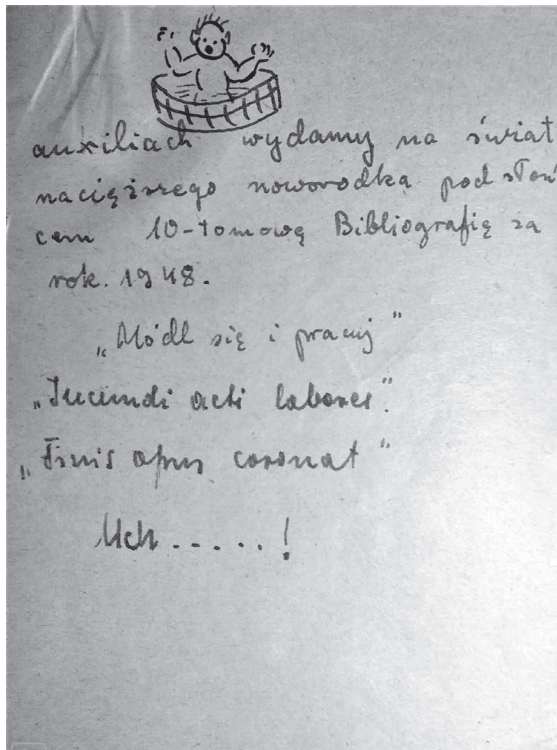 auxiliach wydamy na świat
nacięższego noworodka pod słoń
cem 10-tomową Bibliografię za
rok. 1948.
„Módl się i pracuj”
„Iucundi acti labores”.
„Finis opus coronat”
Uch.....!